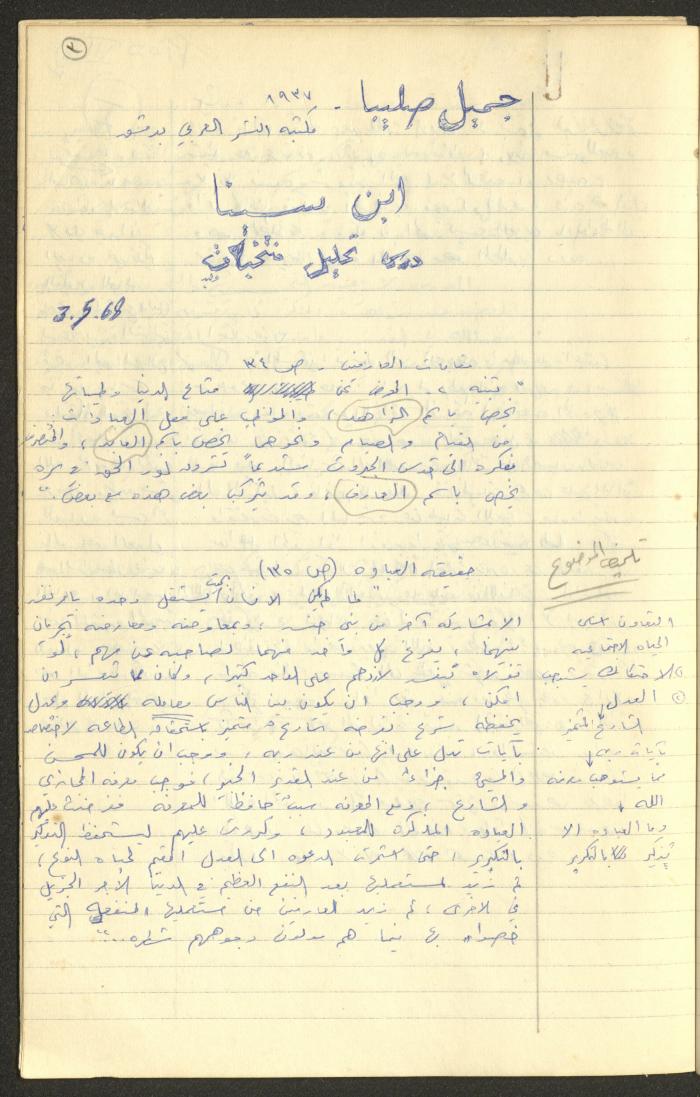 ٢
جميل صليبا - ١٩٣٧
مكتبة النشر العربي بدمشق
ابن سينا
درس تحليل منتخبات
3.5.68
مقامات العارفين - ص ١٣٤
" تنبيه، المعرض عن متاع الدنيا وطيباتها
يخص باسم الزاهد، والمواظب على فعل العبادات:
من القيام والصيام ونحوهما يخص باسم العابد، والمنصرف
بفكره الى قدس الجبروت مستديماً لشروق نور الحق في سره
يخص باسم العارف، وقد يتركب بعض هذه مع بعض. "
تلخيص الموضوع
حقيقة العبادة (ص ١٣٥)
" لما لم يكن الانسان بحيث يستقل وحده بامر نفسه
الا بمشاركة آخر من بني جنسه، وبمعاوضة ومعارضة تجريان
بينهما، يفرغ كل واحد منهما لصاحبه عن مهم، لو
تولاه بنفسه لازدحم على الواحد كثيرا، وكان مما يتعسر ان
امكن، ووجب ان يكون بين الناس معاملة وعدل
يحفظه شرع يفرضه شارع متميز باستحقاق الطاعة لاختصاصه
بآيات تدل على انها من عند ربه، ووجب ان يكون للمحسن
والمسيء جزاء من عند القدير الخبير، فوجب معرفة المجازي
والشارع، ومع المعرفة سبب حافظ للمعرفة ففرضت عليهم
العبادة المذكرة للمعبود، وكررت عليهم ليستحفظ التذكير
بالتكرير، حتى استمرت الدعوة الى العدل المقيم لحياة النوع،
ثم زيد لمستعمليها بعد النفع العظيم في الدنيا الأجر الجزيل
في الاخرى، ثم زيد للعارفين من مستعمليها المنفعة التي
خصوا بها فيما هم مولون وجوههم شطره... "
التعاون اساس
الحياة الاجتماعية
١) الاحتكاك يستوجب
٢) العدل
الشارع المتميز
بآيات ربه
مما يستوجب معرفة
الله
وما العبادة الا
تذكير بالتكرير